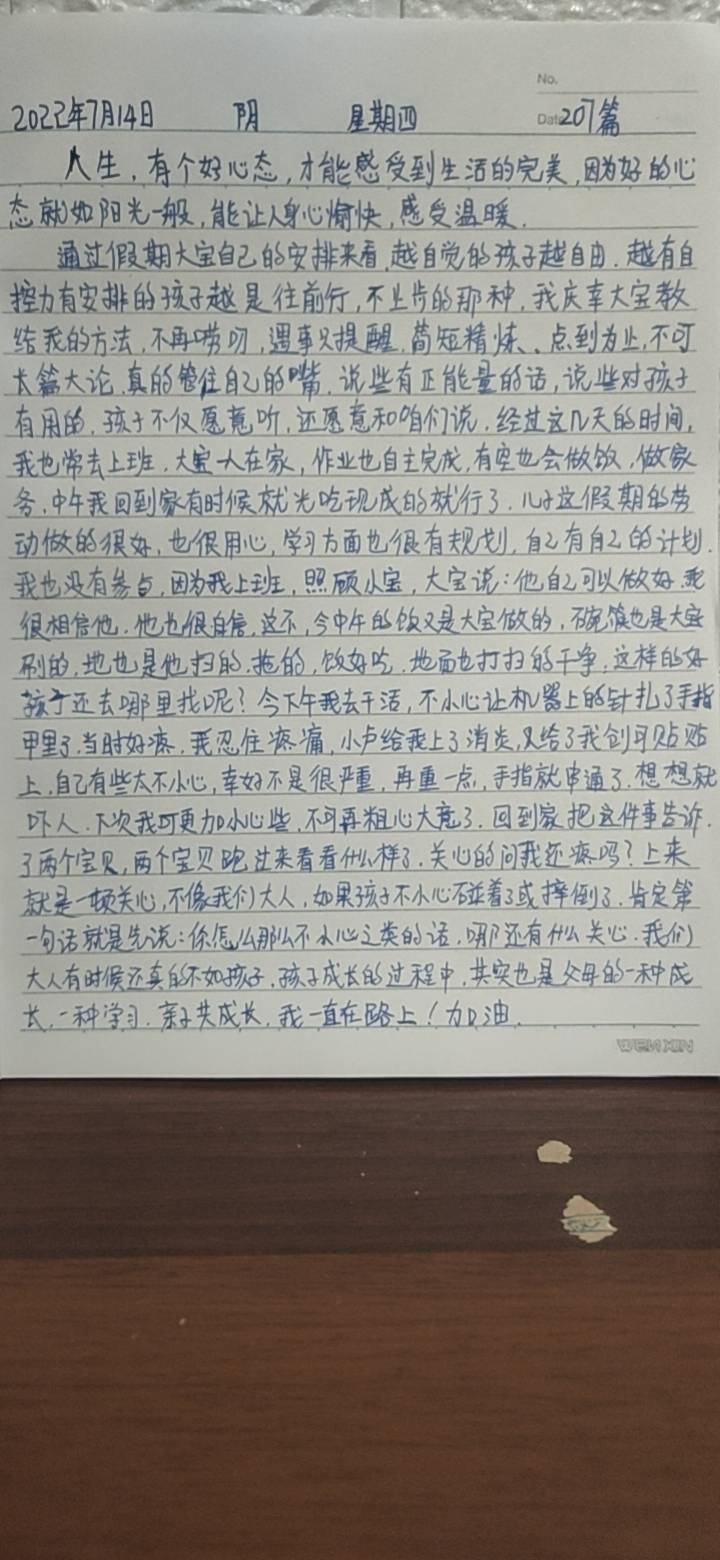 No.
Date 207篇
2022年7月14日 阴 星期四
人生，有个好心态，才能感受到生活的完美，因为好的心
态就如阳光一般，能让人身心愉快，感受温暖．
通过假期大宝自己的安排来看，越自觉的孩子越自由．越有自
控力有安排的孩子越是往前行，不止步的那种，我庆幸大宝教
给我的方法，不再唠叨，遇事只提醒，简短精炼、点到为止，不可
长篇大论，真的管住自己的嘴，说些有正能量的话，说些对孩子
有用的，孩子不仅愿意听，还愿意和咱们说．经过这几天的时间，
我也常去上班，大宝一人在家，作业也自主完成，有空也会做饭，做家
务，中午我回到家有时候就光吃现成的就行了．儿子这假期的劳
动做的很好，也很用心，学习方面也很有规划，自己有自己的计划．
我也没有参与，因为我上班，照顾小宝，大宝说：他自己可以做好，我
很相信他．他也很自信，这不，今中午的饭又是大宝做的，碗筷也是大宝
刷的，地也是他扫的，拖的，饭好吃，地面也打扫的干净，这样的好
孩子还去哪里找呢？今下午我去干活，不小心让机器上的针扎了手指
甲里了，当时好疼，我忍住疼痛，小卢给我上了消炎，又给了我创可贴贴
上，自己有些太不小心，幸好不是很严重，再重一点，手指就串通了．想想就
吓人．下次我可更加小心些，不可再粗心大意了．回到家把这件事告诉．
了两个宝贝，两个宝贝跑过来看看什么样了．关心的问我还疼吗？上来
就是一顿关心，不像我们大人，如果孩子不小心碰着了或摔倒了．肯定第
一句话就是先说：你怎么那么不小心之类的话，哪还有什么关心．我们
大人有时候还真的不如孩子．孩子成长的过程中，其实也是父母的一种成
长，一种学习．亲子共成长，我一直在路上！加油．
WEN XIN